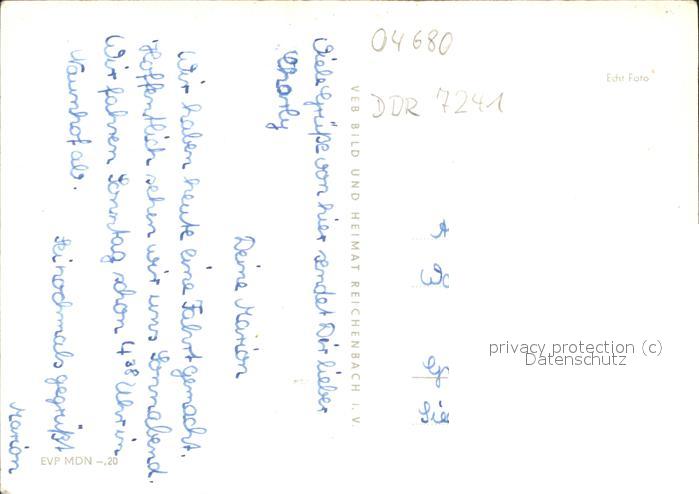 Viele Grüße von hier sendet Dir lieber
Charly
Deine Marion
Wir haben heute eine Fahrt gemacht.
Hoffentlich sehen wir uns Sonnabend.
Wir fahren Sonntag schon 4³⁸ Uhr in
Naunhof ab.
Sei nochmals gegrüßt
Marion
04680
DDR 7241
Echt Foto
VEB BILD UND HEIMAT REICHENBACH I. V.
EVP MDN –,20
privacy protection (c)
Datenschutz